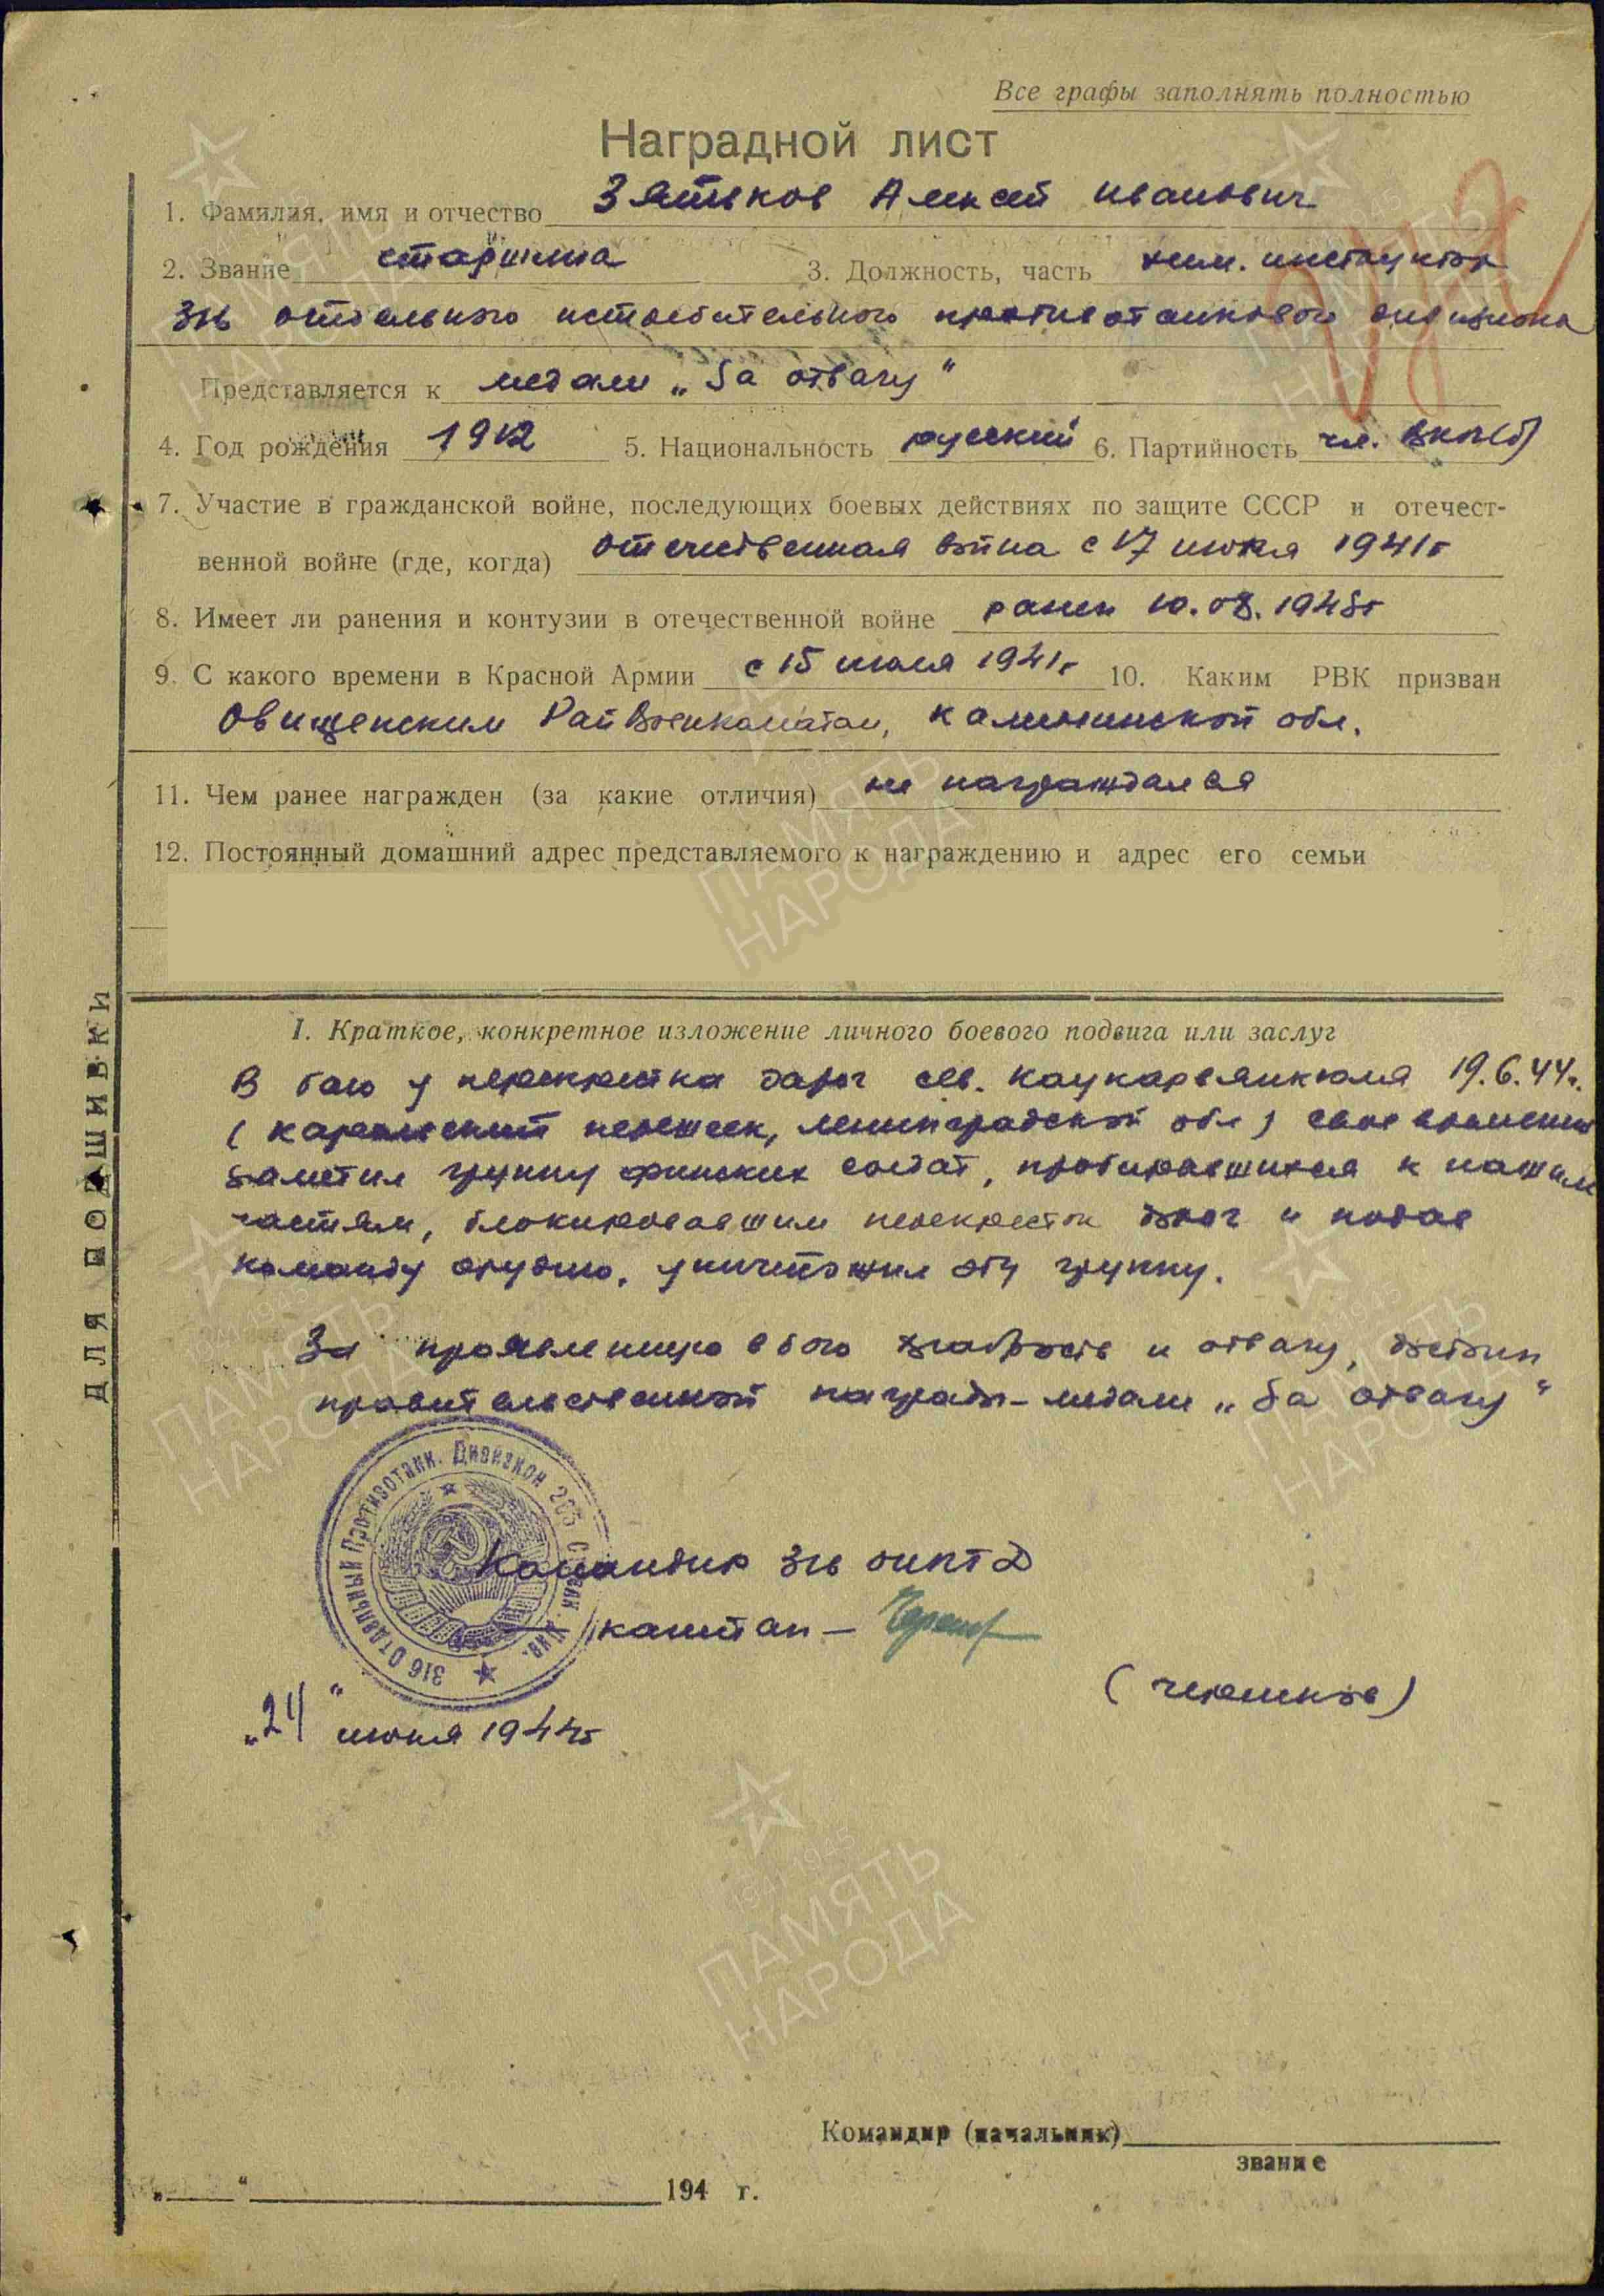 Все графы заполнять полностью
Наградной лист
1. Фамилия, имя и отчество Зятьков Алексей Иванович
2. Звание старшина 3. Должность, часть хим. инструктор
316 отдельного истребительного противотанкового дивизиона
Представляется к медали „За отвагу"
4. Год рождения 1912 5. Национальность русский 6. Партийность чл. ВКП(б)
7. Участие в гражданской войне, последующих боевых действиях по защите СССР и отечест-
венной войне (где, когда) отечественная война с 17 июля 1941г
8. Имеет ли ранения и контузии в отечественной войне ранен 10.08.1943г
9. С какого времени в Красной Армии с 15 июля 1941г 10. Каким РВК призван
Овищенским РайВоенкоматом, Калининской обл.
11. Чем ранее награжден (за какие отличия) не награждался
12. Постоянный домашний адрес представляемого к награждению и адрес его семьи
I. Краткое, конкретное изложение личного боевого подвига или заслуг
В бою у перекрестка дорог сев. Каукярвянкюля 19.6.44г.
(Карельский перешеек, Ленинградской обл) своевременно
заметил группу финских солдат, пробиравшихся к нашим
частям, блокировавшим перекресток дорог и подав
команду орудию, уничтожил эту группу.
За проявленную в бою храбрость и отвагу, достоин
правительственной награды – медали „За отвагу"
316 Отдельный Противотанк. Дивизион 205 Стрелк. Див.
Командир 316 ОИПТД
капитан –
„24" июня 1944г
Командир (начальник)
звание
„ " 194 г.
ДЛЯ ПОДШИВКИ
ПАМЯТЬ
НАРОДА
1941-1945